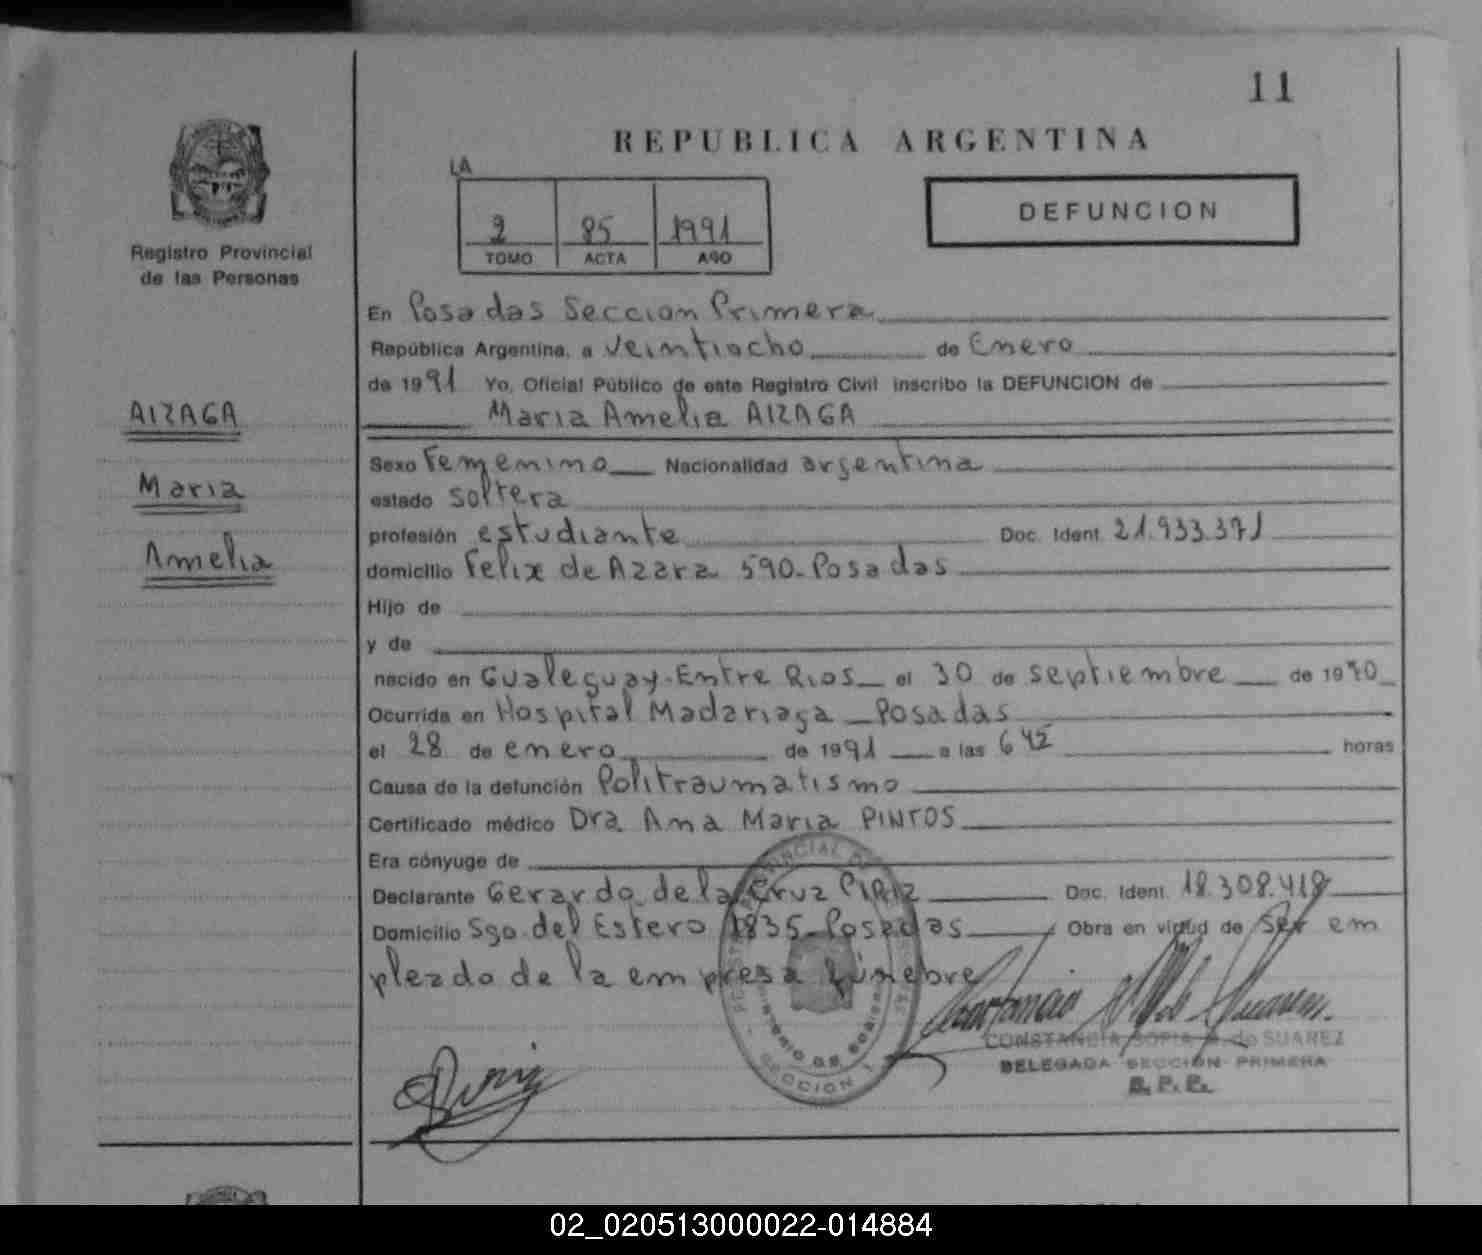 11
REPUBLICA ARGENTINA
LA
2 85 1991
TOMO ACTA AÑO
DEFUNCION
Registro Provincial
de las Personas
AIZAGA
Maria
Amelia
En Posadas Seccion Primera
República Argentina, a veintiocho de Enero
de 1991 Yo, Oficial Público de este Registro Civil inscribo la DEFUNCION de
Maria Amelia AIZAGA
Sexo Femenino Nacionalidad argentina
estado soltera
profesión estudiante Doc. Ident. 21.933.371
domicilio Felix de Azara 590-Posadas
Hijo de
y de
nacido en Gualeguay-Entre Rios el 30 de septiembre de 1970
Ocurrida en Hospital Madariaga - Posadas
el 28 de enero de 1991 a las 6 42 horas
Causa de la defunción Politraumatismo
Certificado médico Dra Ana Maria PINTOS
Era cónyuge de
Declarante Gerardo de la Cruz Doc. Ident. 18.308.418
Domicilio Sgo. del Estero 1835-Posadas Obra en virtud de ser em
pleado de la empresa fúnebre
CONSTANCIA SOFIA de SUAREZ
DELEGADA SECCION PRIMERA
R. P. P.
REGISTRO PROVINCIAL DE LAS
MINISTERIO DE GOBIERNO
SECCION 1
02_020513000022-014884